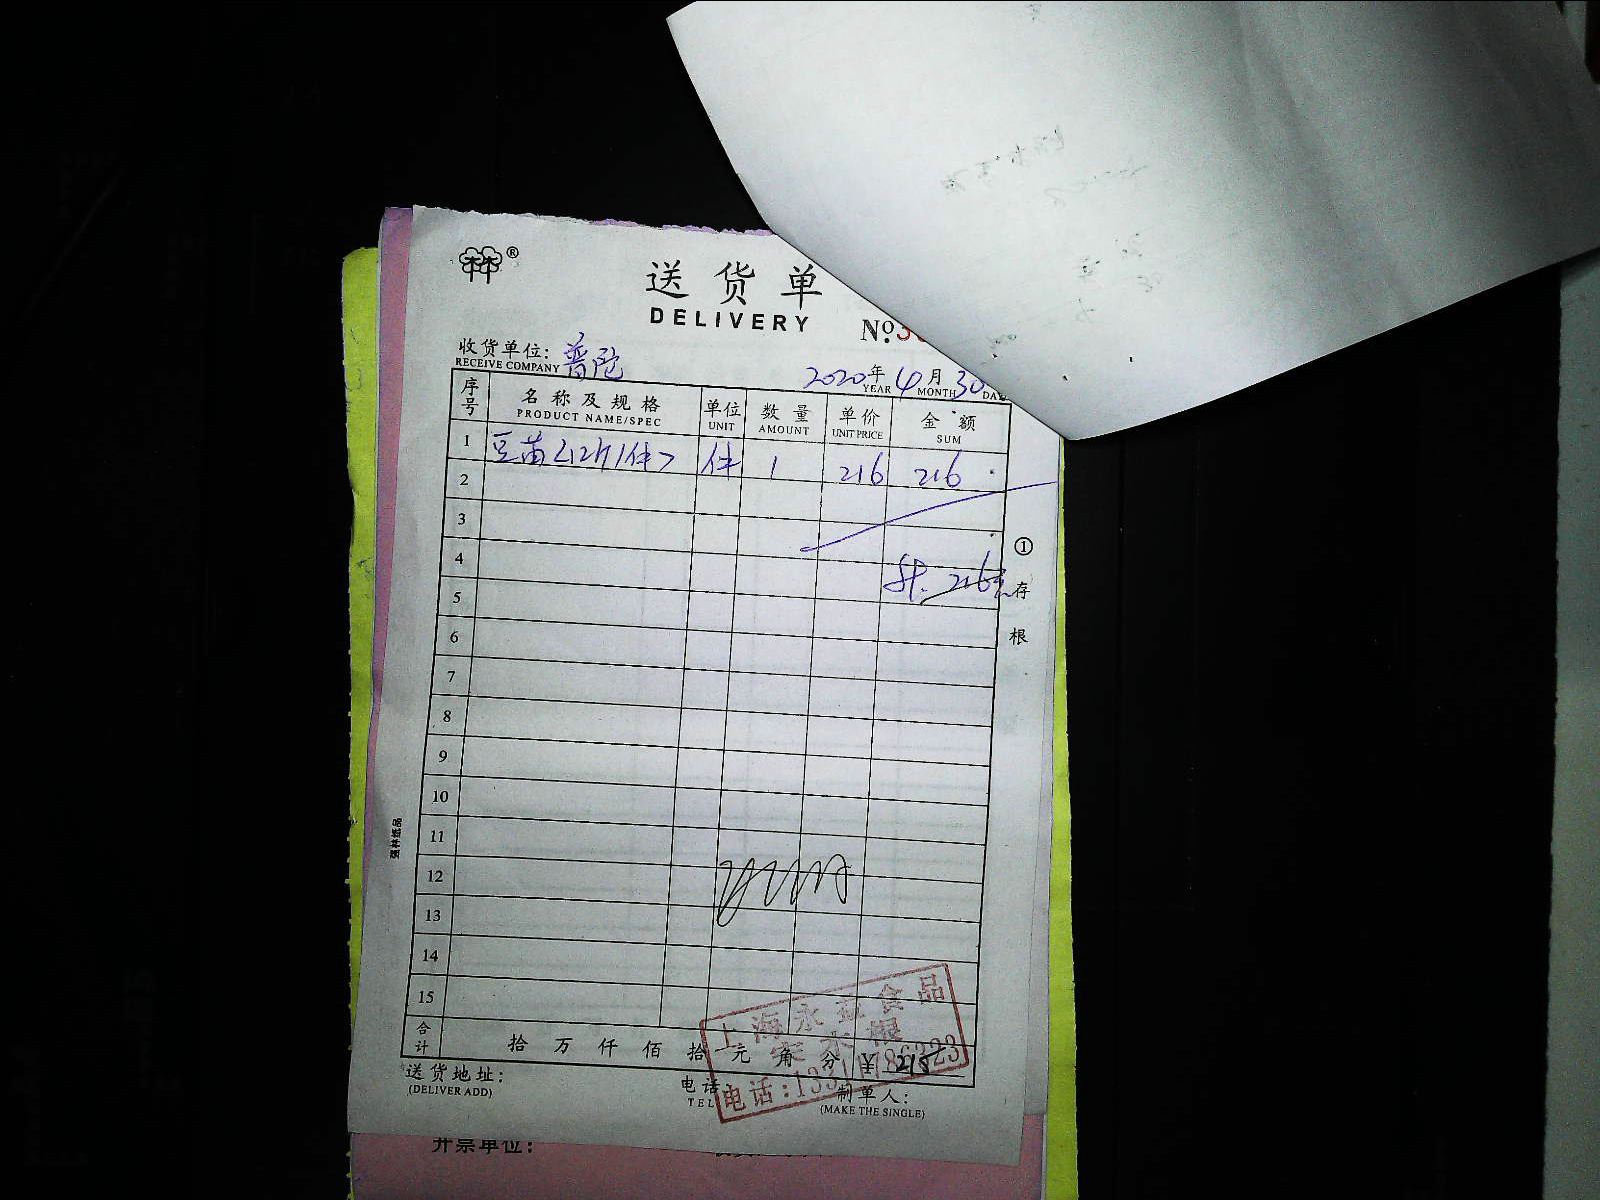 林®
送货单
DELIVERY
No.3
收货单位：普陀
RECEIVE COMPANY
2020年 4月 30
YEAR MONTH DAY
序号 名称及规格 单位 数量 单价 金额
PRODUCT NAME/SPEC UNIT AMOUNT UNIT PRICE SUM
1 豆苗<12斤/件> 件 1 216 216
2
3
4
计: 216元
5
6
7
8
9
10
11
12
13
14
15
合计 拾 万 仟 佰 拾 元 角 分 ¥ 216
① 存根
强林纸品
上海永益食品
电话:
送货地址：
(DELIVER ADD)
电话
TEL
制单人：
(MAKE THE SINGLE)
开票单位：